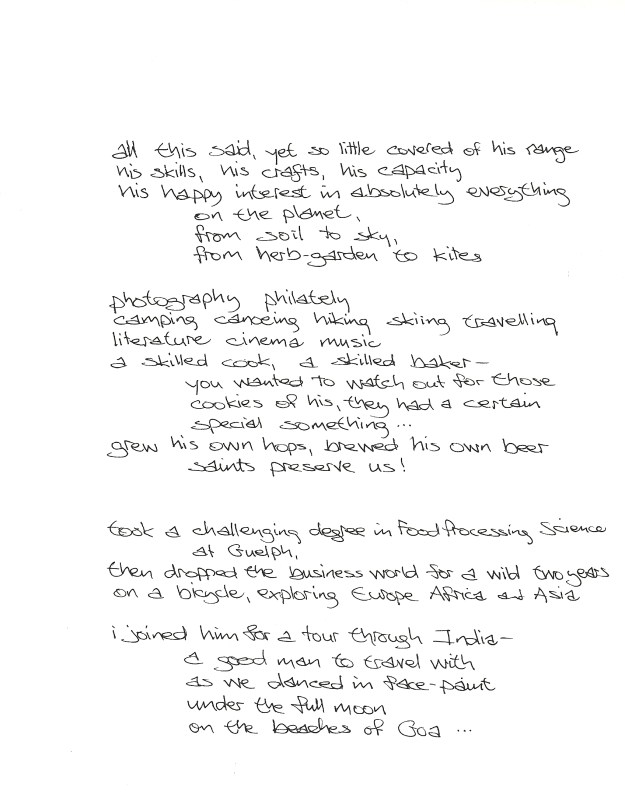 all this said, yet so little covered of his range
his skills, his crafts, his capacity
his happy interest in absolutely everything
on the planet,
from soil to sky,
from herb-garden to kites
photography philately
camping canoeing hiking skiing travelling
literature cinema music
a skilled cook, a skilled baker—
you wanted to watch out for those
cookies of his, they had a certain
special something...
grew his own hops, brewed his own beer
saints preserve us!
took a challenging degree in Food Processing Science
at Guelph,
then dropped the business world for a wild two years
on a bicycle, exploring Europe Africa and Asia
i joined him for a tour through India—
a good man to travel with
as we danced in face-paint
under the full moon
on the beaches of Goa ...